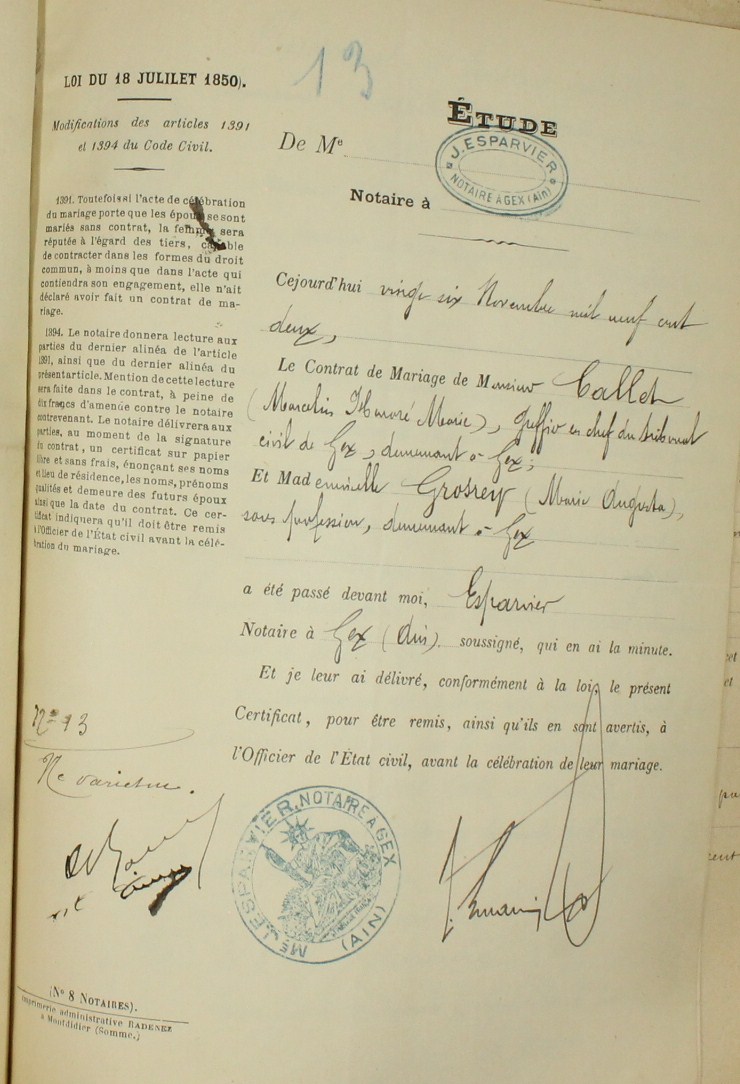 13
LOI DU 18 JULILET 1850).
Modifications des articles 1391
et 1394 du Code Civil.
1391. Toutefois si l'acte de célébration
du mariage porte que les époux se sont
mariés sans contrat, la femme sera
réputée à l'égard des tiers, capable
de contracter dans les formes du droit
commun, à moins que dans l'acte qui
contiendra son engagement, elle n'ait
déclaré avoir fait un contrat de ma-
riage.
1394. Le notaire donnera lecture aux
parties du dernier alinéa de l'article
1391, ainsi que du dernier alinéa du
présent article. Mention de cette lecture
sera faite dans le contrat, à peine de
dix francs d'amende contre le notaire
contrevenant. Le notaire délivrera aux
parties, au moment de la signature
du contrat, un certificat sur papier
libre et sans frais, énonçant ses noms
et lieu de résidence, les noms, prénoms
qualités et demeure des futurs époux
ainsi que la date du contrat. Ce cer-
tificat indiquera qu'il doit être remis
à l'Officier de l'État civil avant la célé-
bration du mariage.
Nº 13
Ne varietur.
(Nº 8 NOTAIRES).
Imprimerie administrative RADENEZ
à Montdidier (Somme.)
ÉTUDE
De Mᵉ
J. ESPARVIER
NOTAIRE A GEX (AIN)
Notaire à
Cejourd'hui vingt six Novembre mil neuf cent
deux,
Le Contrat de Mariage de Monsieur Callet
(Marcelin Honoré Marie), Greffier en chef du tribunal
civil de Gex, demeurant à Gex,
Et Mademoiselle Grosrey (Marie Augusta),
sans profession, demeurant à Gex
a été passé devant moi, Esparvier
Notaire à Gex (Ain). soussigné, qui en ai la minute.
Et je leur ai délivré, conformément à la loi, le présent
Certificat, pour être remis, ainsi qu'ils en sont avertis, à
l'Officier de l'État civil, avant la célébration de leur mariage.
Mᵉ J. ESPARVIER, NOTAIRE A GEX
(AIN)